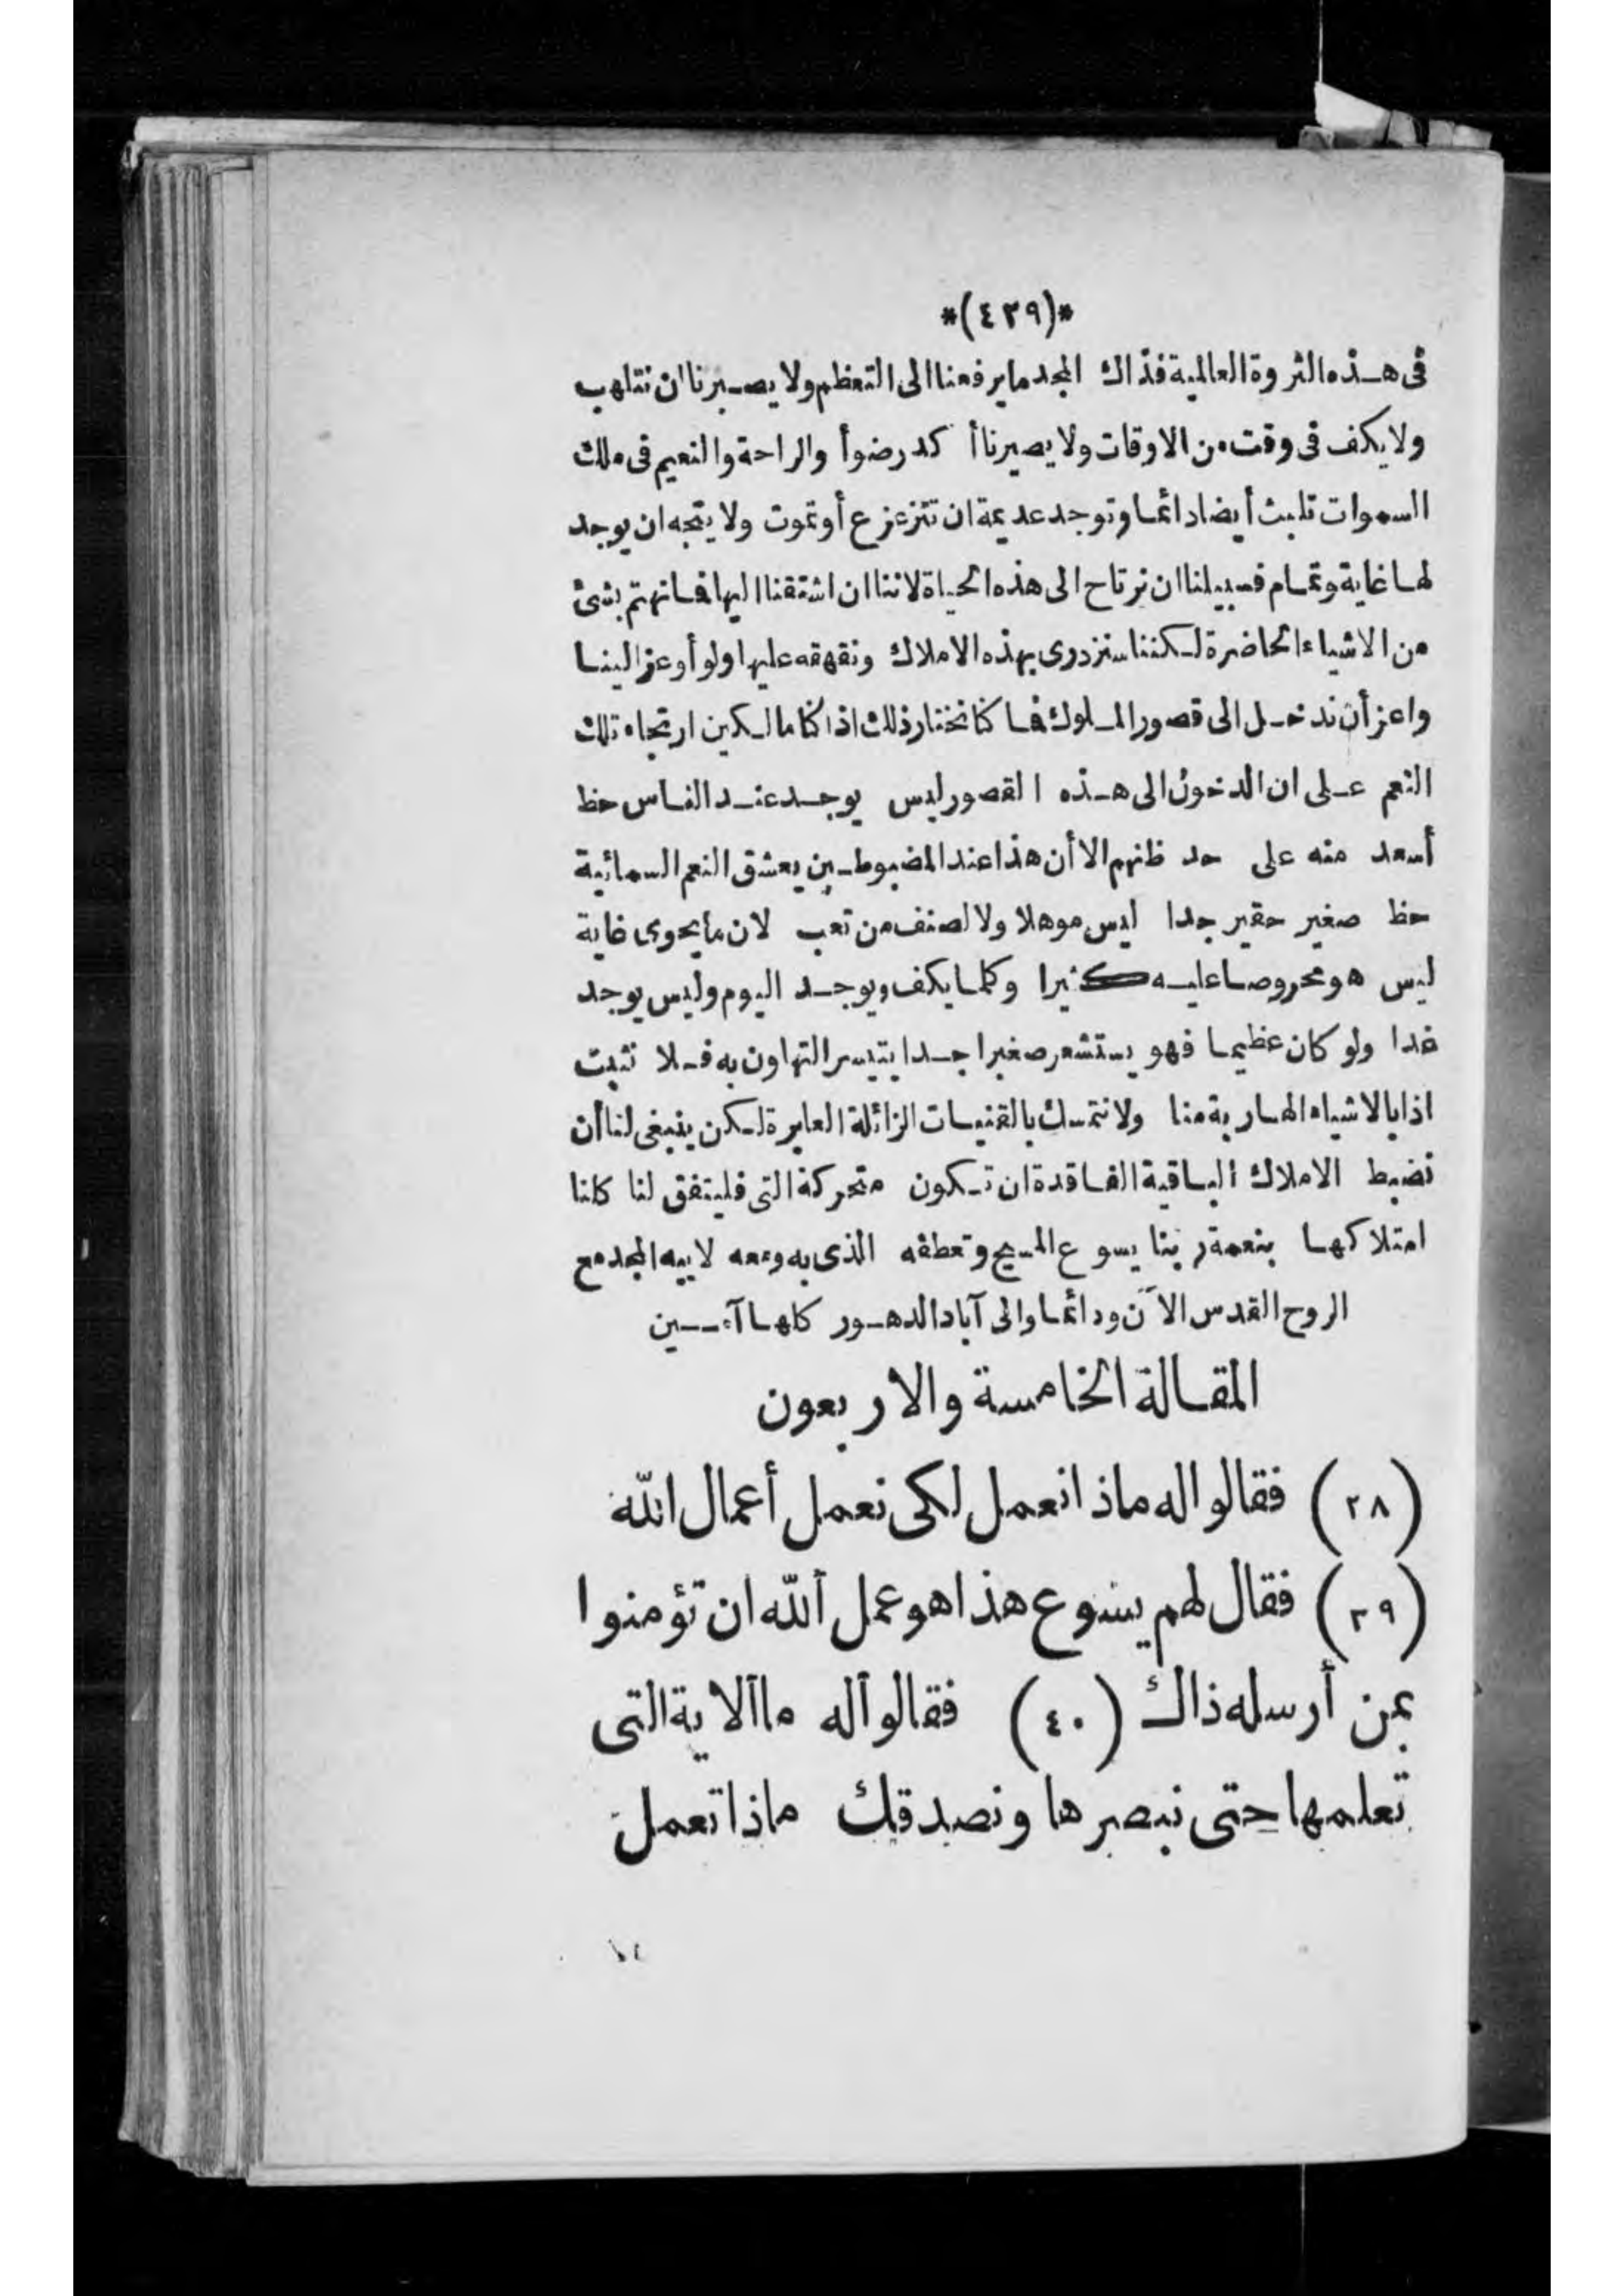 *(٤٣٩)*
فى هذه الثروة العالمية فذاك المجد ما يرفعنا الى التعظم ولا يصيرنا ان نتلهب
ولا يكف فى وقت من الاوقات ولا يصيرنا أكدر ضوأ والراحة والنعيم فى ملك
السموات تلبث أيضا دائما وتوجد عديمة ان تتزعزع أو تموت ولا يتجه ان يوجد
لها غاية وتمام فسبيلنا ان نرتاح الى هذه الحياة لاننا ان اشتقنا اليها فما نهتم بشئ
من الاشياء الحاضرة لكننا سنزدرى بهذه الاملاك ونقهقه عليها ولو أوعز الينا
واعز أن ندخل الى قصور الملوك فما كنا نختار ذلك اذا كنا مالكين ارتجاء تلك
النعم على ان الدخول الى هذه القصور ليس يوجد عند الناس حظ
أسعد منه على حد ظنهم الا أن هذا عند المضبوطين بعشق النعم السمائية
حظ صغير حقير جدا ليس موهلا ولا لصنف من تعب لان ما يحوى غاية
ليس هو محروصا عليه كثيرا وكلما يكف ويوجد اليوم وليس يوجد
غدا ولو كان عظيما فهو يستشعر صغيرا جدا يتيسر التهاون به فلا نثبت
اذا بالاشياء الهاربة منا ولا نتمسك بالقنيات الزائلة العابرة لكن ينبغى لنا أن
نضبط الاملاك الباقية الفاقدة ان تكون متحركة التى فليتفق لنا كلنا
امتلاكها بنعمة ربنا يسوع المسيح وتعطفه الذى به ومعه لابيه المجد مع
الروح القدس الآن ودائما والى آباد الدهور كلها آمين
المقالة الخامسة والاربعون
(٢٨) فقالوا له ماذا نعمل لكى نعمل أعمال الله
(٢٩) فقال لهم يسوع هذا هو عمل ألله ان تؤمنوا
بمن أرسله ذاك (٤٠) فقالوا له ما الاية التى
تعلمها حتى نبصرها ونصدقك ماذا تعمل